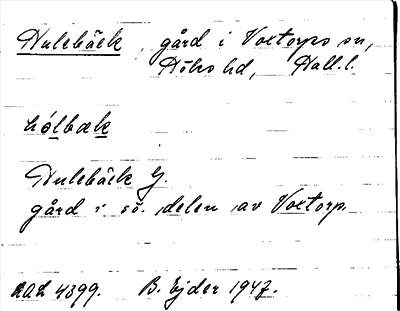 Hulebäck, gård i Voxtorps sn,
Höks hd, Hall. l.
hólbæk
Hulebäck G.
gård i sö. delen av Voxtorp.
RAÄ 4399. B. Ejder 1947.